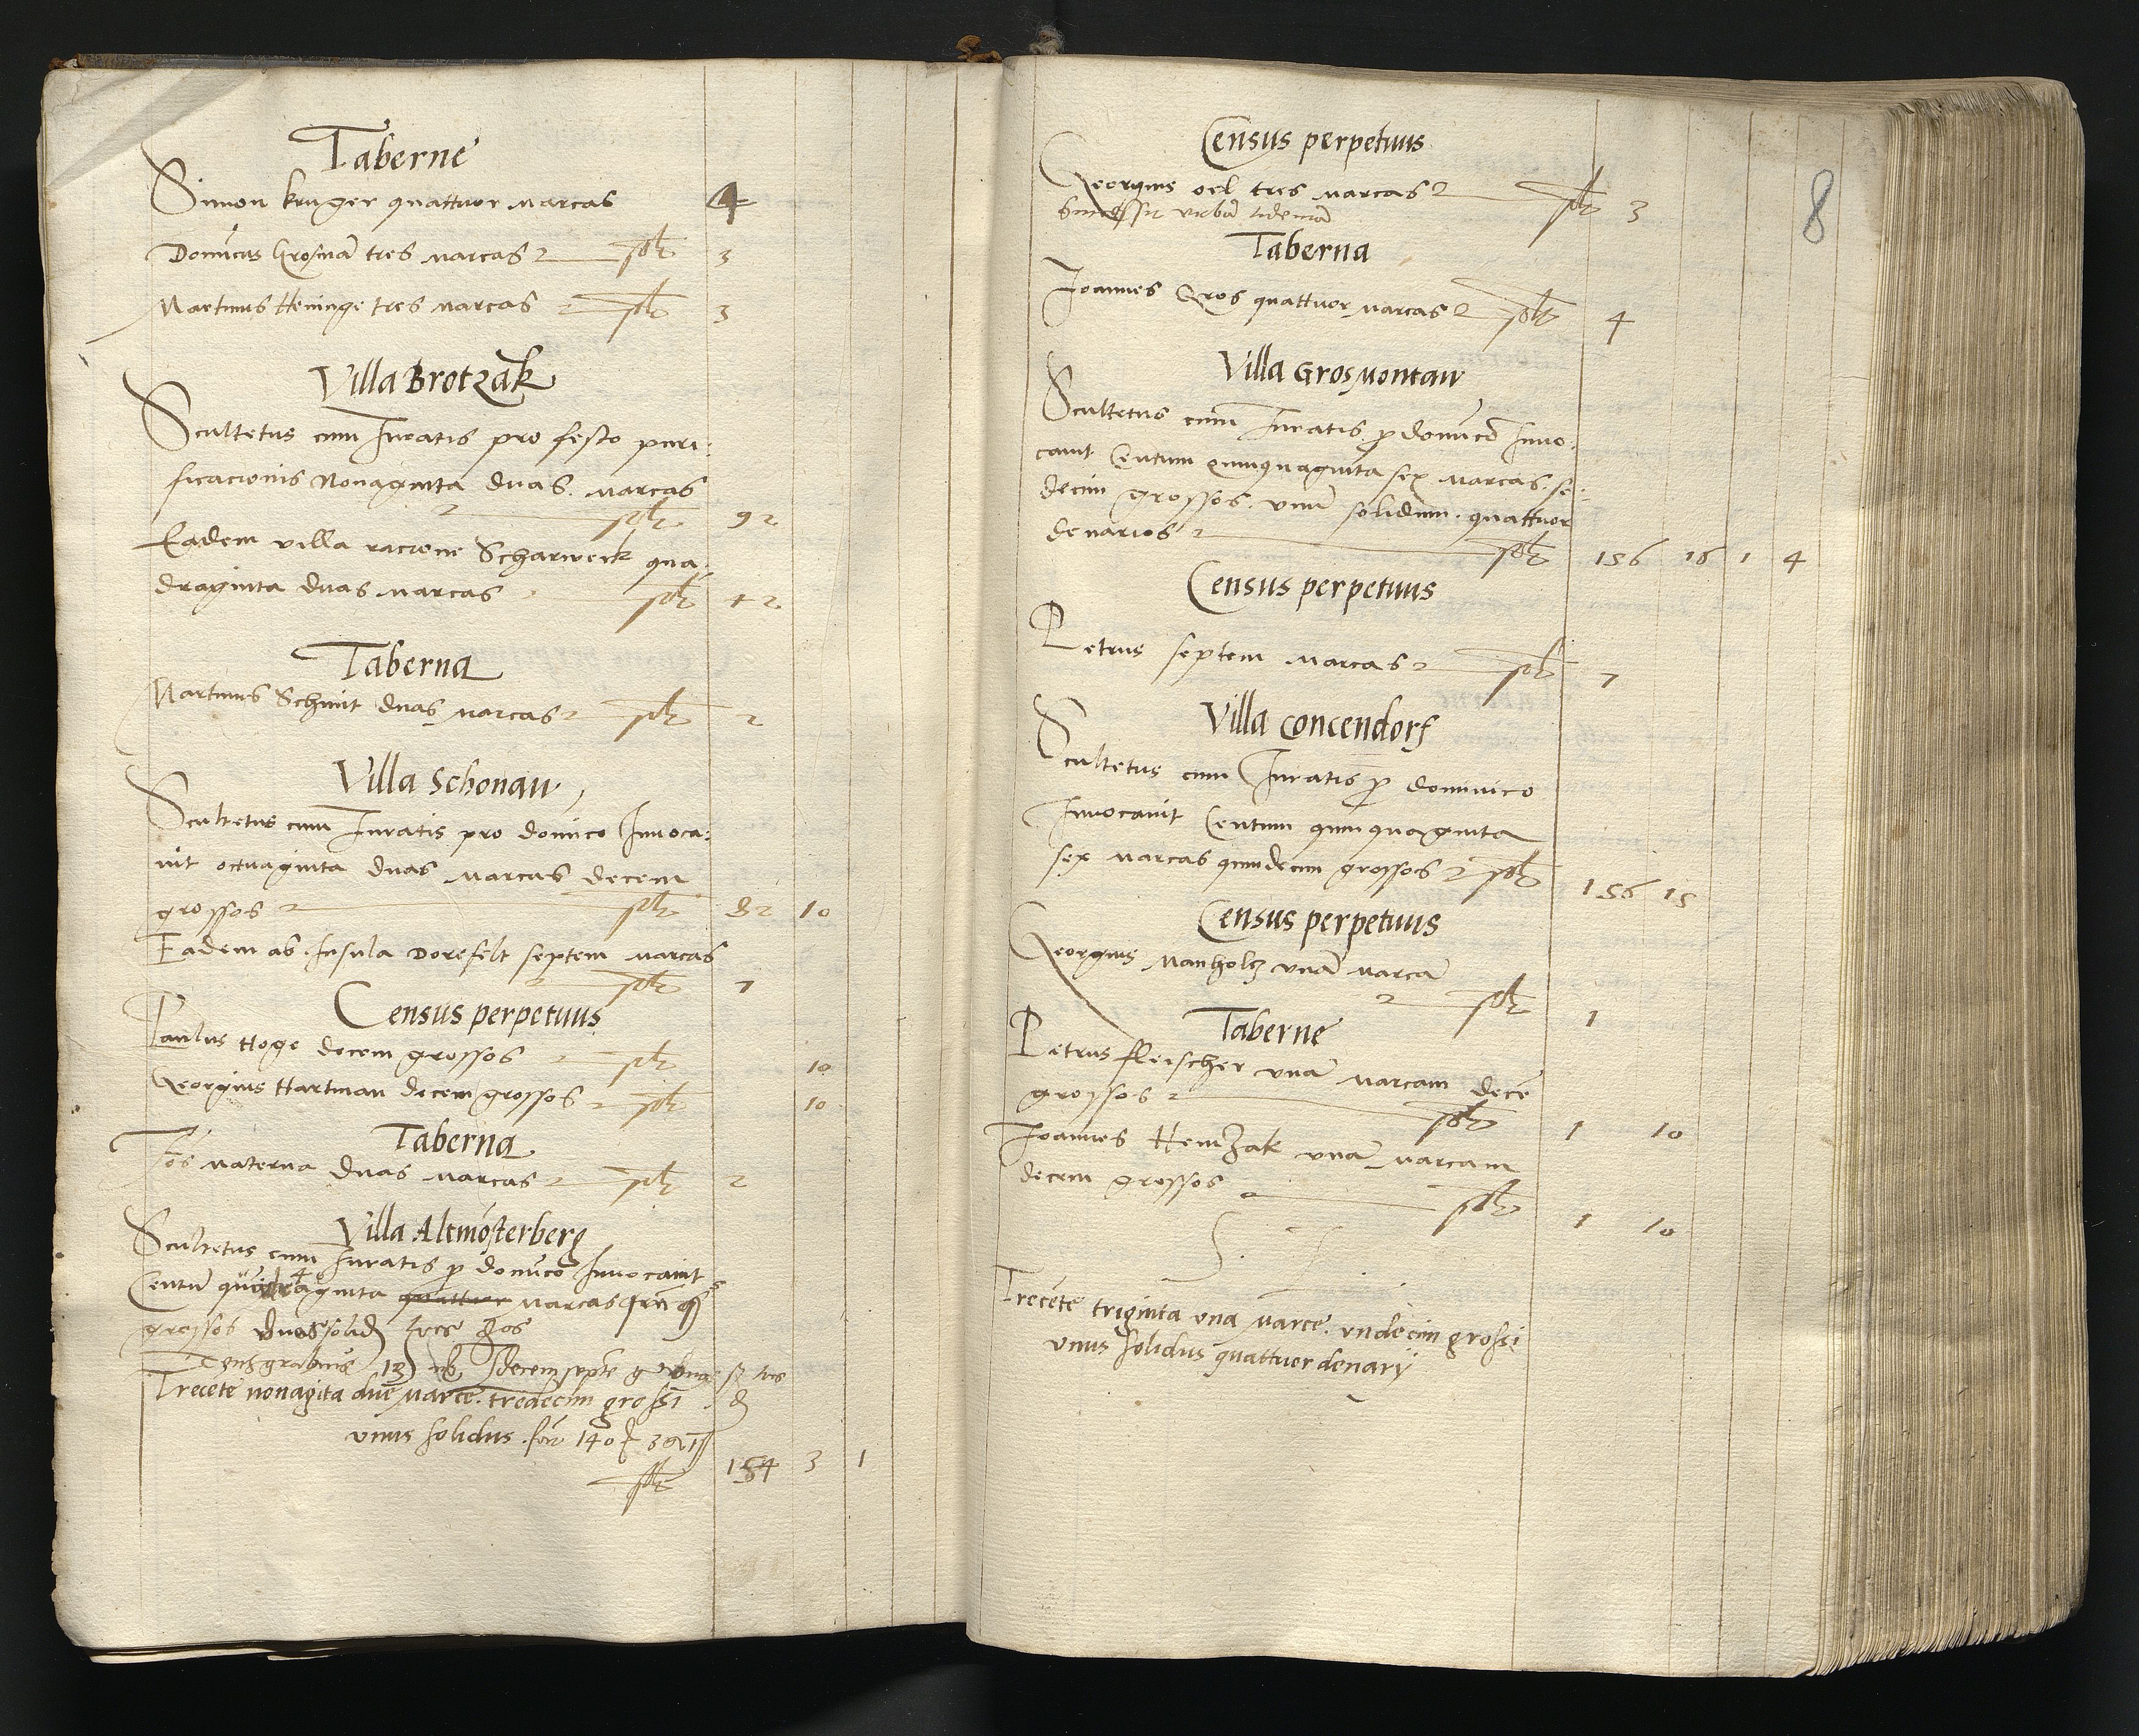 Taberne
Simon kruger quattuor marcas 4
Dominicus Grosman tres marcas solt 3
Martinus Heninge tres marcas solt 3
Villa Brotzak
Scultetus cum Juratis pro festo puri:
ficacionis Nonaginta duas marcas
solt 92
Eadem villa racione Scharwerk qua:
draginta duas marcas solt 42
Taberna
Martinus Schmit duas marcas solt 2
Villa Schonaw
Scultetus cum Juratis pro dominico Invoca:
vit octuaginta duas marcas decem
grossos solt 82 10
Eadem ab Insula Dorefelt septem marcas
solt 7
Census perpetuus
Paulus Hoge decem grossos solt 10
Georgius Hartman decem grossos solt 10
Taberna
materna duas marcas solt 2
Villa Altmosterberg
Scultetus cum Juratis p dominico Invocauit
Centum quadraginta quattuor marcas
grossos duos solid
decem septe
Trecete nonagita due marce. tredecim grossi
unus solidus 140
solt 154 3 1
8
Census perpetuus
Georgius oel tres marcas solt 3
Successit urban
Taberna
Joannes Gros quattuor marcas solt 4
Villa Grosmontaw
Scultetus cum Juratis p dominico Invo:
cauit Centum quinquaginta sex marcas se:
decim grossos unum solidum quattuor
denarios solt 156 16 1 4
Census perpetuus
Petrus septem marcas solt 7
Villa Concendorf
Scultetus cum Juratis p dominico
Invocavit Centum quinquaginta
sex marcas quindecim grossos solt 156 15
Census perpetuus
Georgius Manholtz unã marcã
solt 1
Taberne
Petrus fleischer unã marcam decẽ
grossos solt 1 10
Joannes Hemzak unã marcam
decem grossos solt 1 10
Trecẽte triginta una marce. undecim grossi
unus solidus quattuor denarij